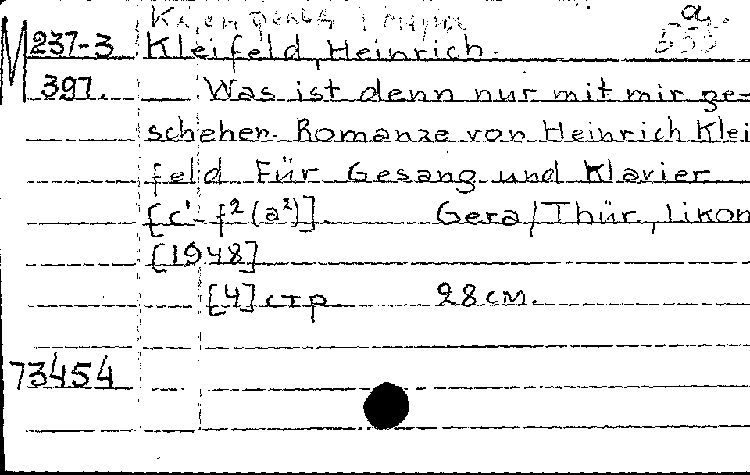 a.
M 237-3 Kleifeld, Heinrich.
397. Was ist denn nur mit mir ge-
schehen. Romanze von Heinrich Klei
feld Für Gesang und Klavier
[c¹-f²(a²)]. Gera/Thür., Likon
[1948]
[4] стр 28 см.
73454